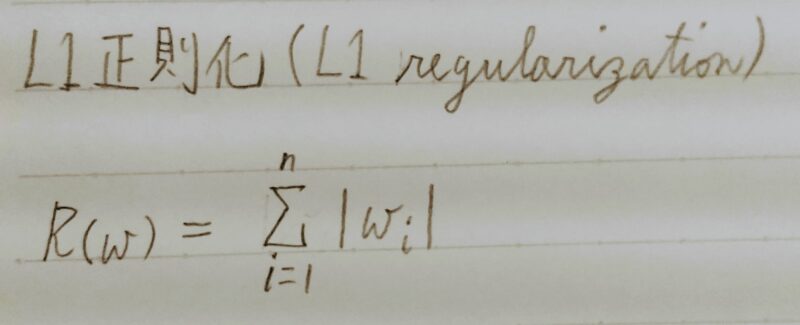 L1正則化 (L1 regularization)
R(w) = \sum_{i=1}^{n} |w_i|